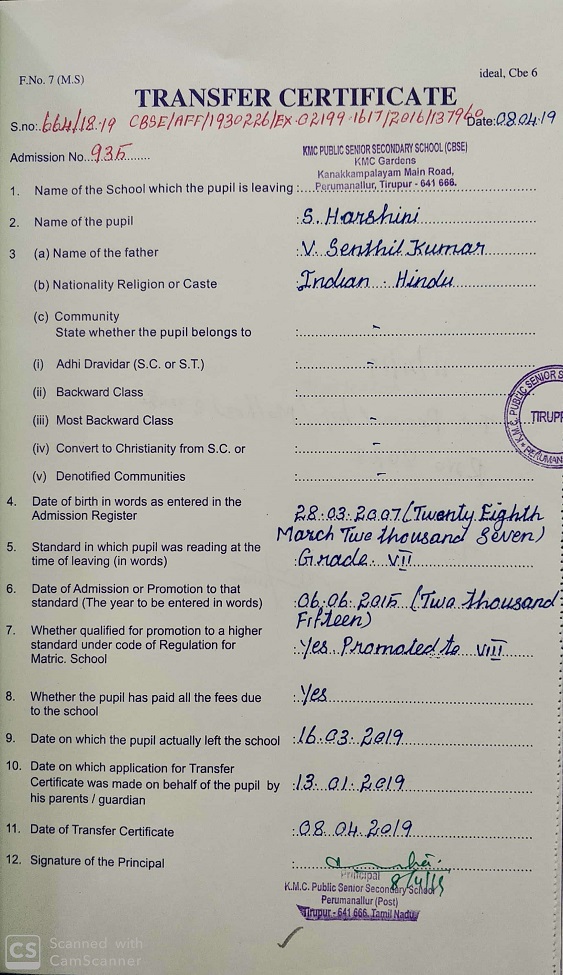 F.No. 7 (M.S)
ideal, Cbe 6
TRANSFER CERTIFICATE
S.no: 664/18-19 CBSE/AFF/1930226/EX-02199-1617/2016/137960 Date: 08.04.19
Admission No. 935
KMC PUBLIC SENIOR SECONDARY SCHOOL (CBSE)
KMC Gardens
Kanakkampalayam Main Road,
Perumanallur, Tirupur - 641 666.
1. Name of the School which the pupil is leaving :
2. Name of the pupil : S. Harshini
3 (a) Name of the father : V. Senthil Kumar
(b) Nationality Religion or Caste : Indian - Hindu
(c) Community
State whether the pupil belongs to : -
(i) Adhi Dravidar (S.C. or S.T.) : -
(ii) Backward Class :
(iii) Most Backward Class : -
(iv) Convert to Christianity from S.C. or : -
(v) Denotified Communities : -
K.M.C. PUBLIC SENIOR S
TIRUPP
PERUMAN
4. Date of birth in words as entered in the
Admission Register
28.03.2007 (Twenty Eighth
March Two thousand Seven)
5. Standard in which pupil was reading at the
time of leaving (in words) : Grade VII
6. Date of Admission or Promotion to that
standard (The year to be entered in words) : 06.06.2015 (Two thousand
Fifteen)
7. Whether qualified for promotion to a higher
standard under code of Regulation for : Yes Promoted to VIII
Matric. School
8. Whether the pupil has paid all the fees due : Yes
to the school
9. Date on which the pupil actually left the school : 16.03.2019
10. Date on which application for Transfer
Certificate was made on behalf of the pupil by : 13.01.2019
his parents / guardian
11. Date of Transfer Certificate : 08.04.2019
12. Signature of the Principal :
Principal 8/4/19
K.M.C. Public Senior Secondary School
Perumanallur (Post)
Tirupur - 641 666. Tamil Nadu
CS Scanned with
CamScanner